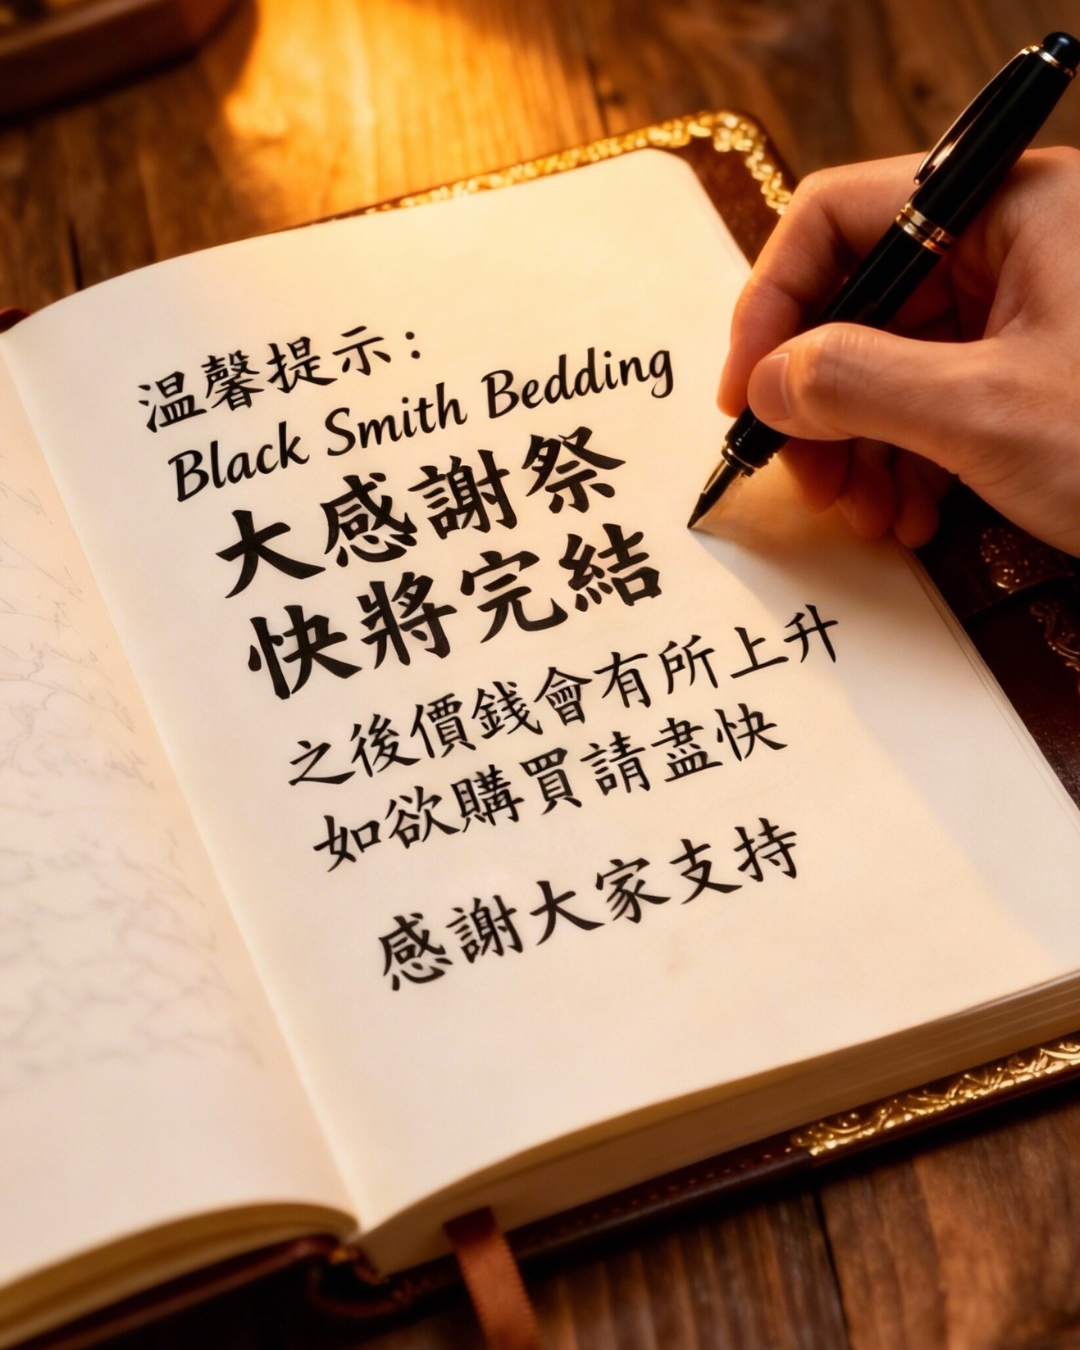 溫馨提示：
Black Smith Bedding
大感謝祭
快將完結
之後價錢會有所上升
如欲購買請盡快
感謝大家支持